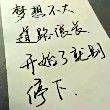 梦想不大
道路很长
开始了就别
停下.